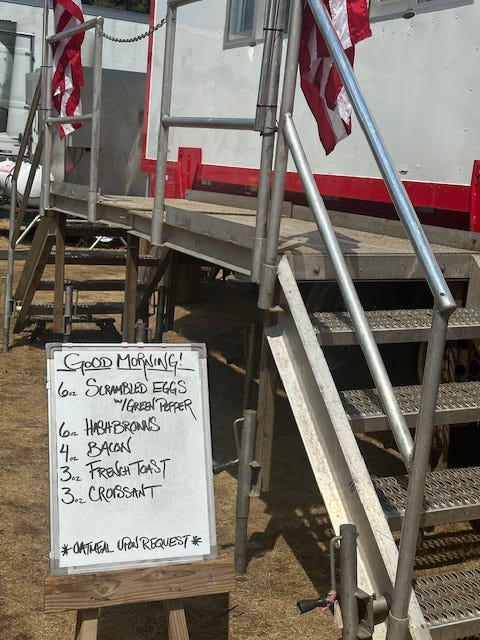 GOOD MORNING!
6oz SCRAMBLED EGGS
w/GREEN PEPPER
6oz HASHBROWNS
4oz BACON
3oz FRENCH TOAST
3oz CROISSANT
*OATMEAL UPON REQUEST*